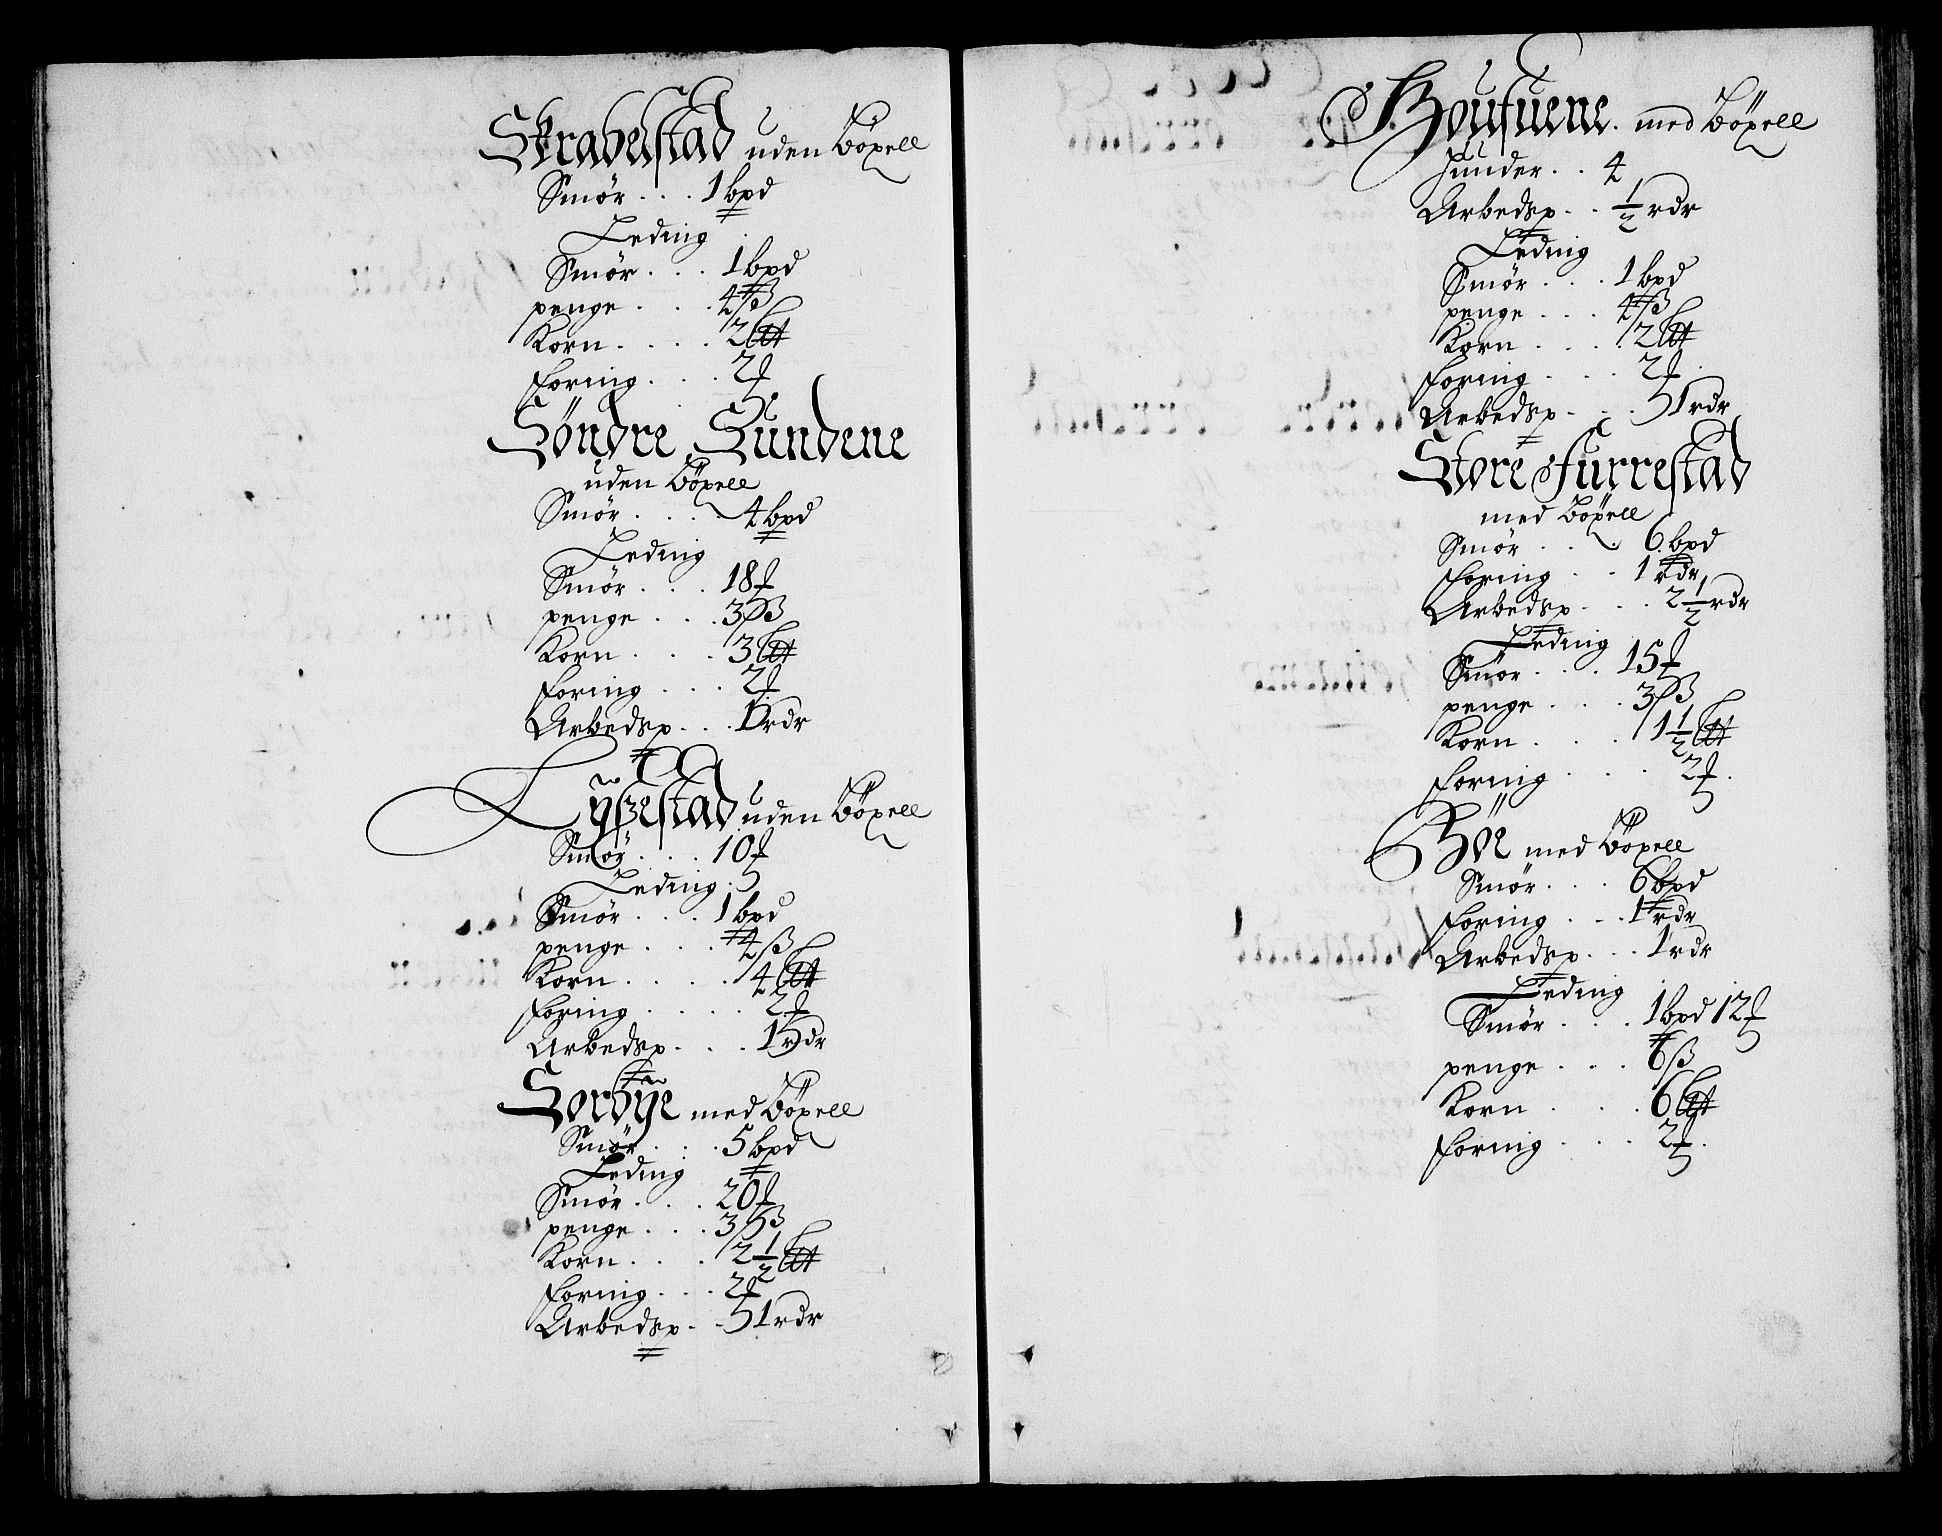 Skrabelstad uden Böxell
Smör . . . 1 bpd
Leding
Smör . . . 1 bpd
penge . . . 4 ß
Korn . . . . 2
foring . . . 2
Söndre Sundene
uden Böxell
Smör . . . . 4 bpd
Leding
Smör . . . 18
penge . . . 3 ß
Korn . . . . 3
foring . . . 2
Arbedsp . . . 1 rdr
Lÿßestad uden Böxell
Smör . . . 10
Leding
Smör . . . . 1 bpd
penge . . . . 4 ß
Korn . . . . . 4
foring . . . . . 2
Arbedsp . . . 1 rdr
Sörbÿe med Böxell
Smör . . . 5 bpd
Leding
Smör . . . 20
penge . . . 3 ß
Korn . . . . 2 1/2
foring . . . 2
Arbedsp . . 1 rdr
med Böxell
hunder . . 4
Arbedsp . . 1/2 rdr
Leding
Smör . . . 1 bpd
penge . . . 4 ß
Korn . . . . 2
foring . . . 2
Arbedsp . . . 1 rdr
Store Furrestad
med Böxell
Smör . . . 6 bpd
foring . . 1 rdr
Arbedsp . . . 2 1/2 rdr
Leding
Smör . . . . 15
penge . . . . 3 ß
Korn . . . . 1 1/2
foring . . . . 2
Böe med Böxell
Smör . . . 6 bpd
foring . . . 1 rdr
Arbedsp . . . 1 rdr
Leding
Smör . . . . 1 bpd 12
penge . . . . 6 ß
Korn . . . . 6
foring . . . . 2